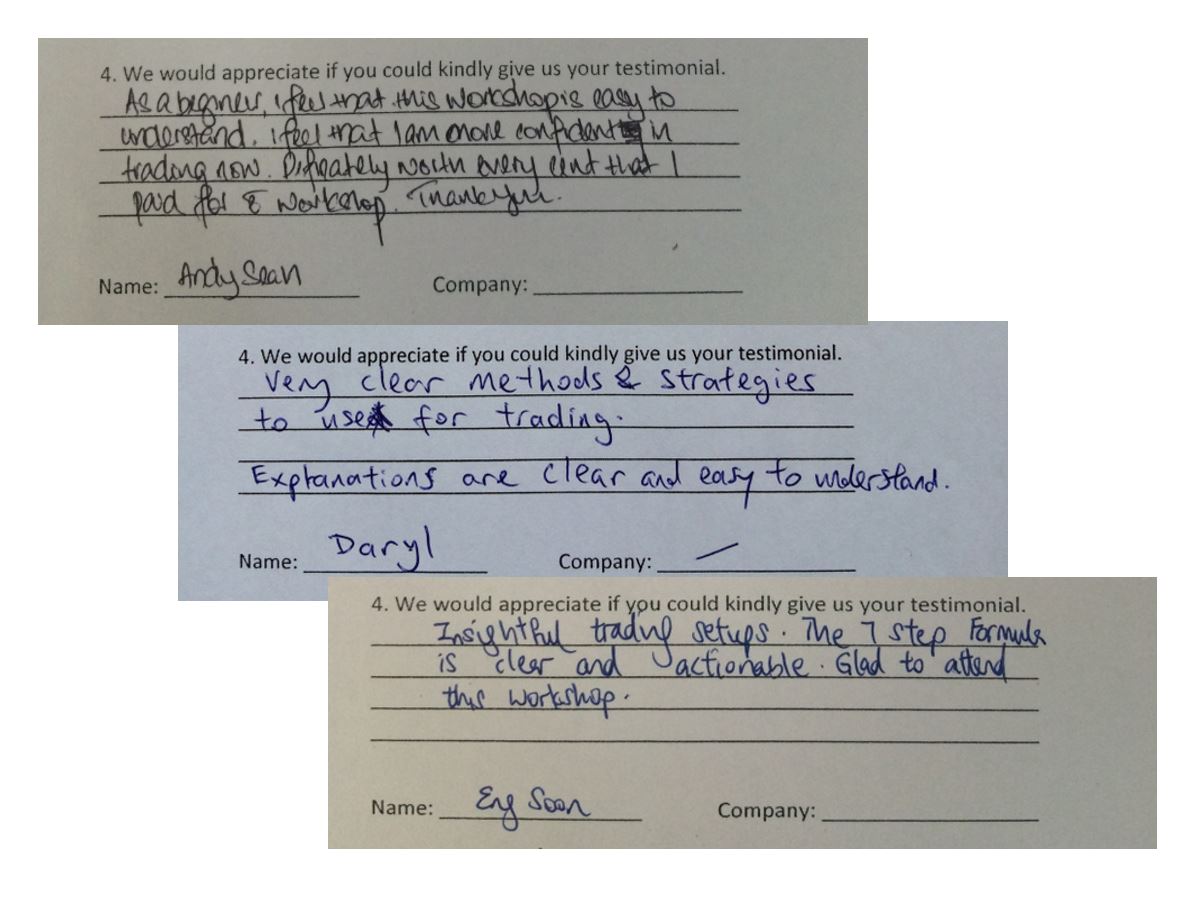 4. We would appreciate if you could kindly give us your testimonial.
As a beginner, i feel that this workshop is easy to
understand. i feel that I am more confident in
trading now. Difinately worth every cent that I
paid for & workshop. Thank you.
Name: Andy Sean Company:
4. We would appreciate if you could kindly give us your testimonial.
Very clear methods & strategies
to use for trading.
Explanations are clear and easy to understand.
Name: Daryl Company: —
4. We would appreciate if you could kindly give us your testimonial.
Insightful trading setups. The 7 step Formula
is clear and actionable. Glad to attend
this workshop.
Name: Eng Soon Company: